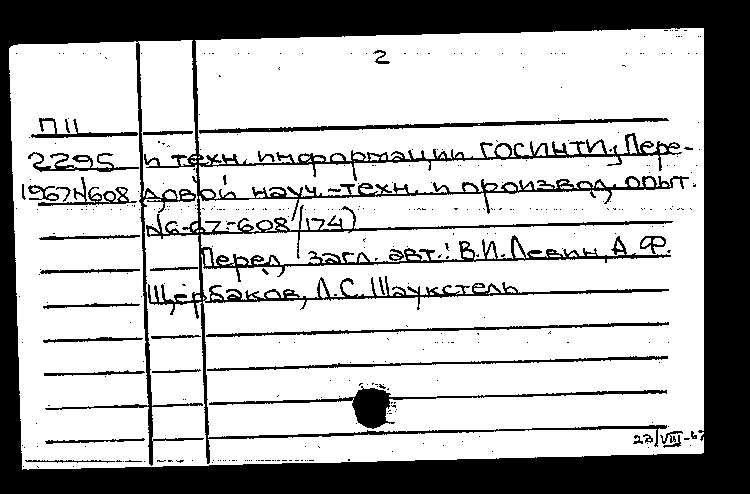 2
П 11
2295 и техн. информации ГОСИНТИ; Пере-
1967N608 довой науч.-техн. и производ. опыт.
N6-67-608/174)
Перед загл. авт.: В.И. Левин, А.Ф.
Щербаков, Л.С. Шаукстель
23/VIII-67